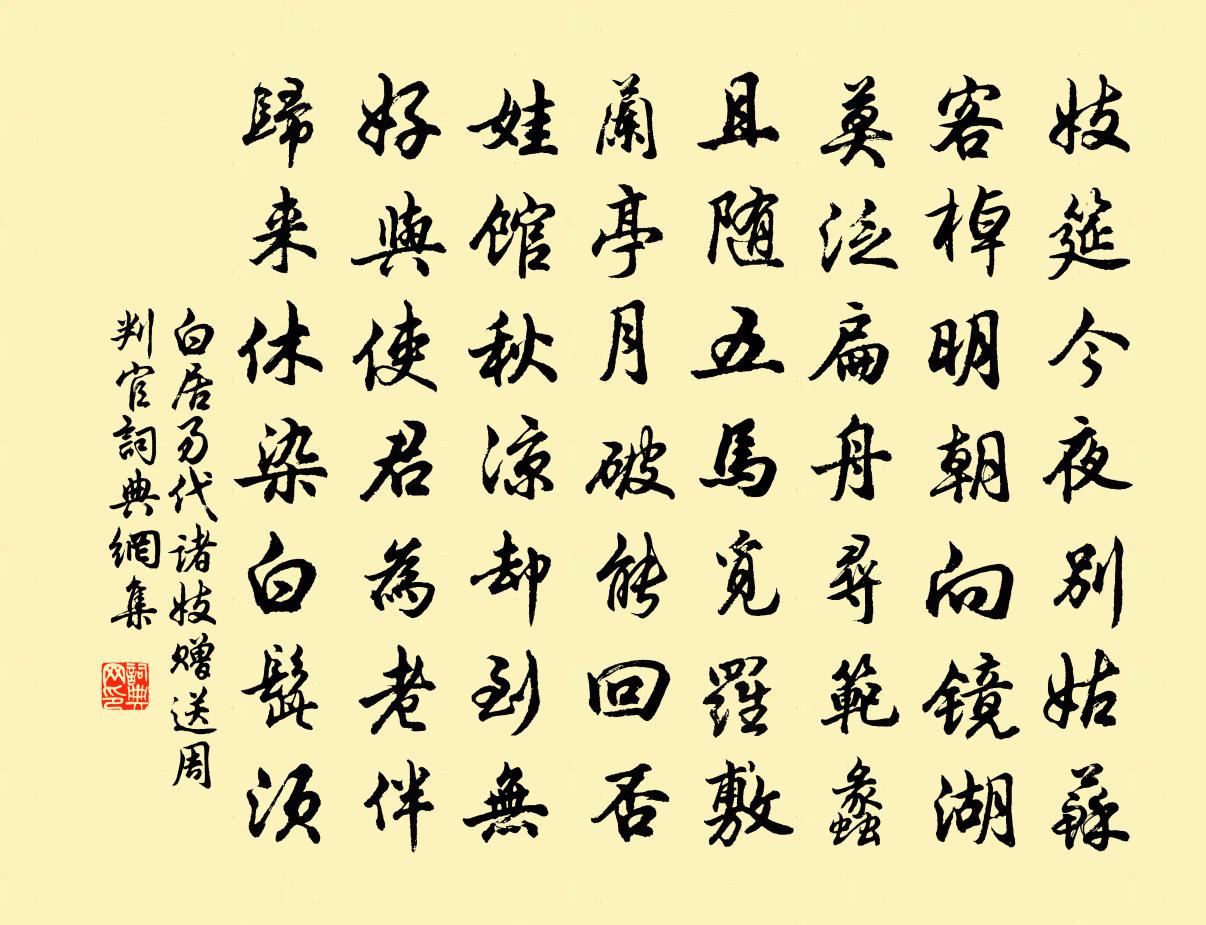 妓筵今夜別姑蘇
客棹明朝向鏡湖
莫泛扁舟尋範蠡
且随五馬覓羅敷
蘭亭月破能回否
娃館秋涼却到無
好與使君為老伴
歸来休染白髭須
白居易代諸妓贈送周
判官詞典網集
詞典
网印